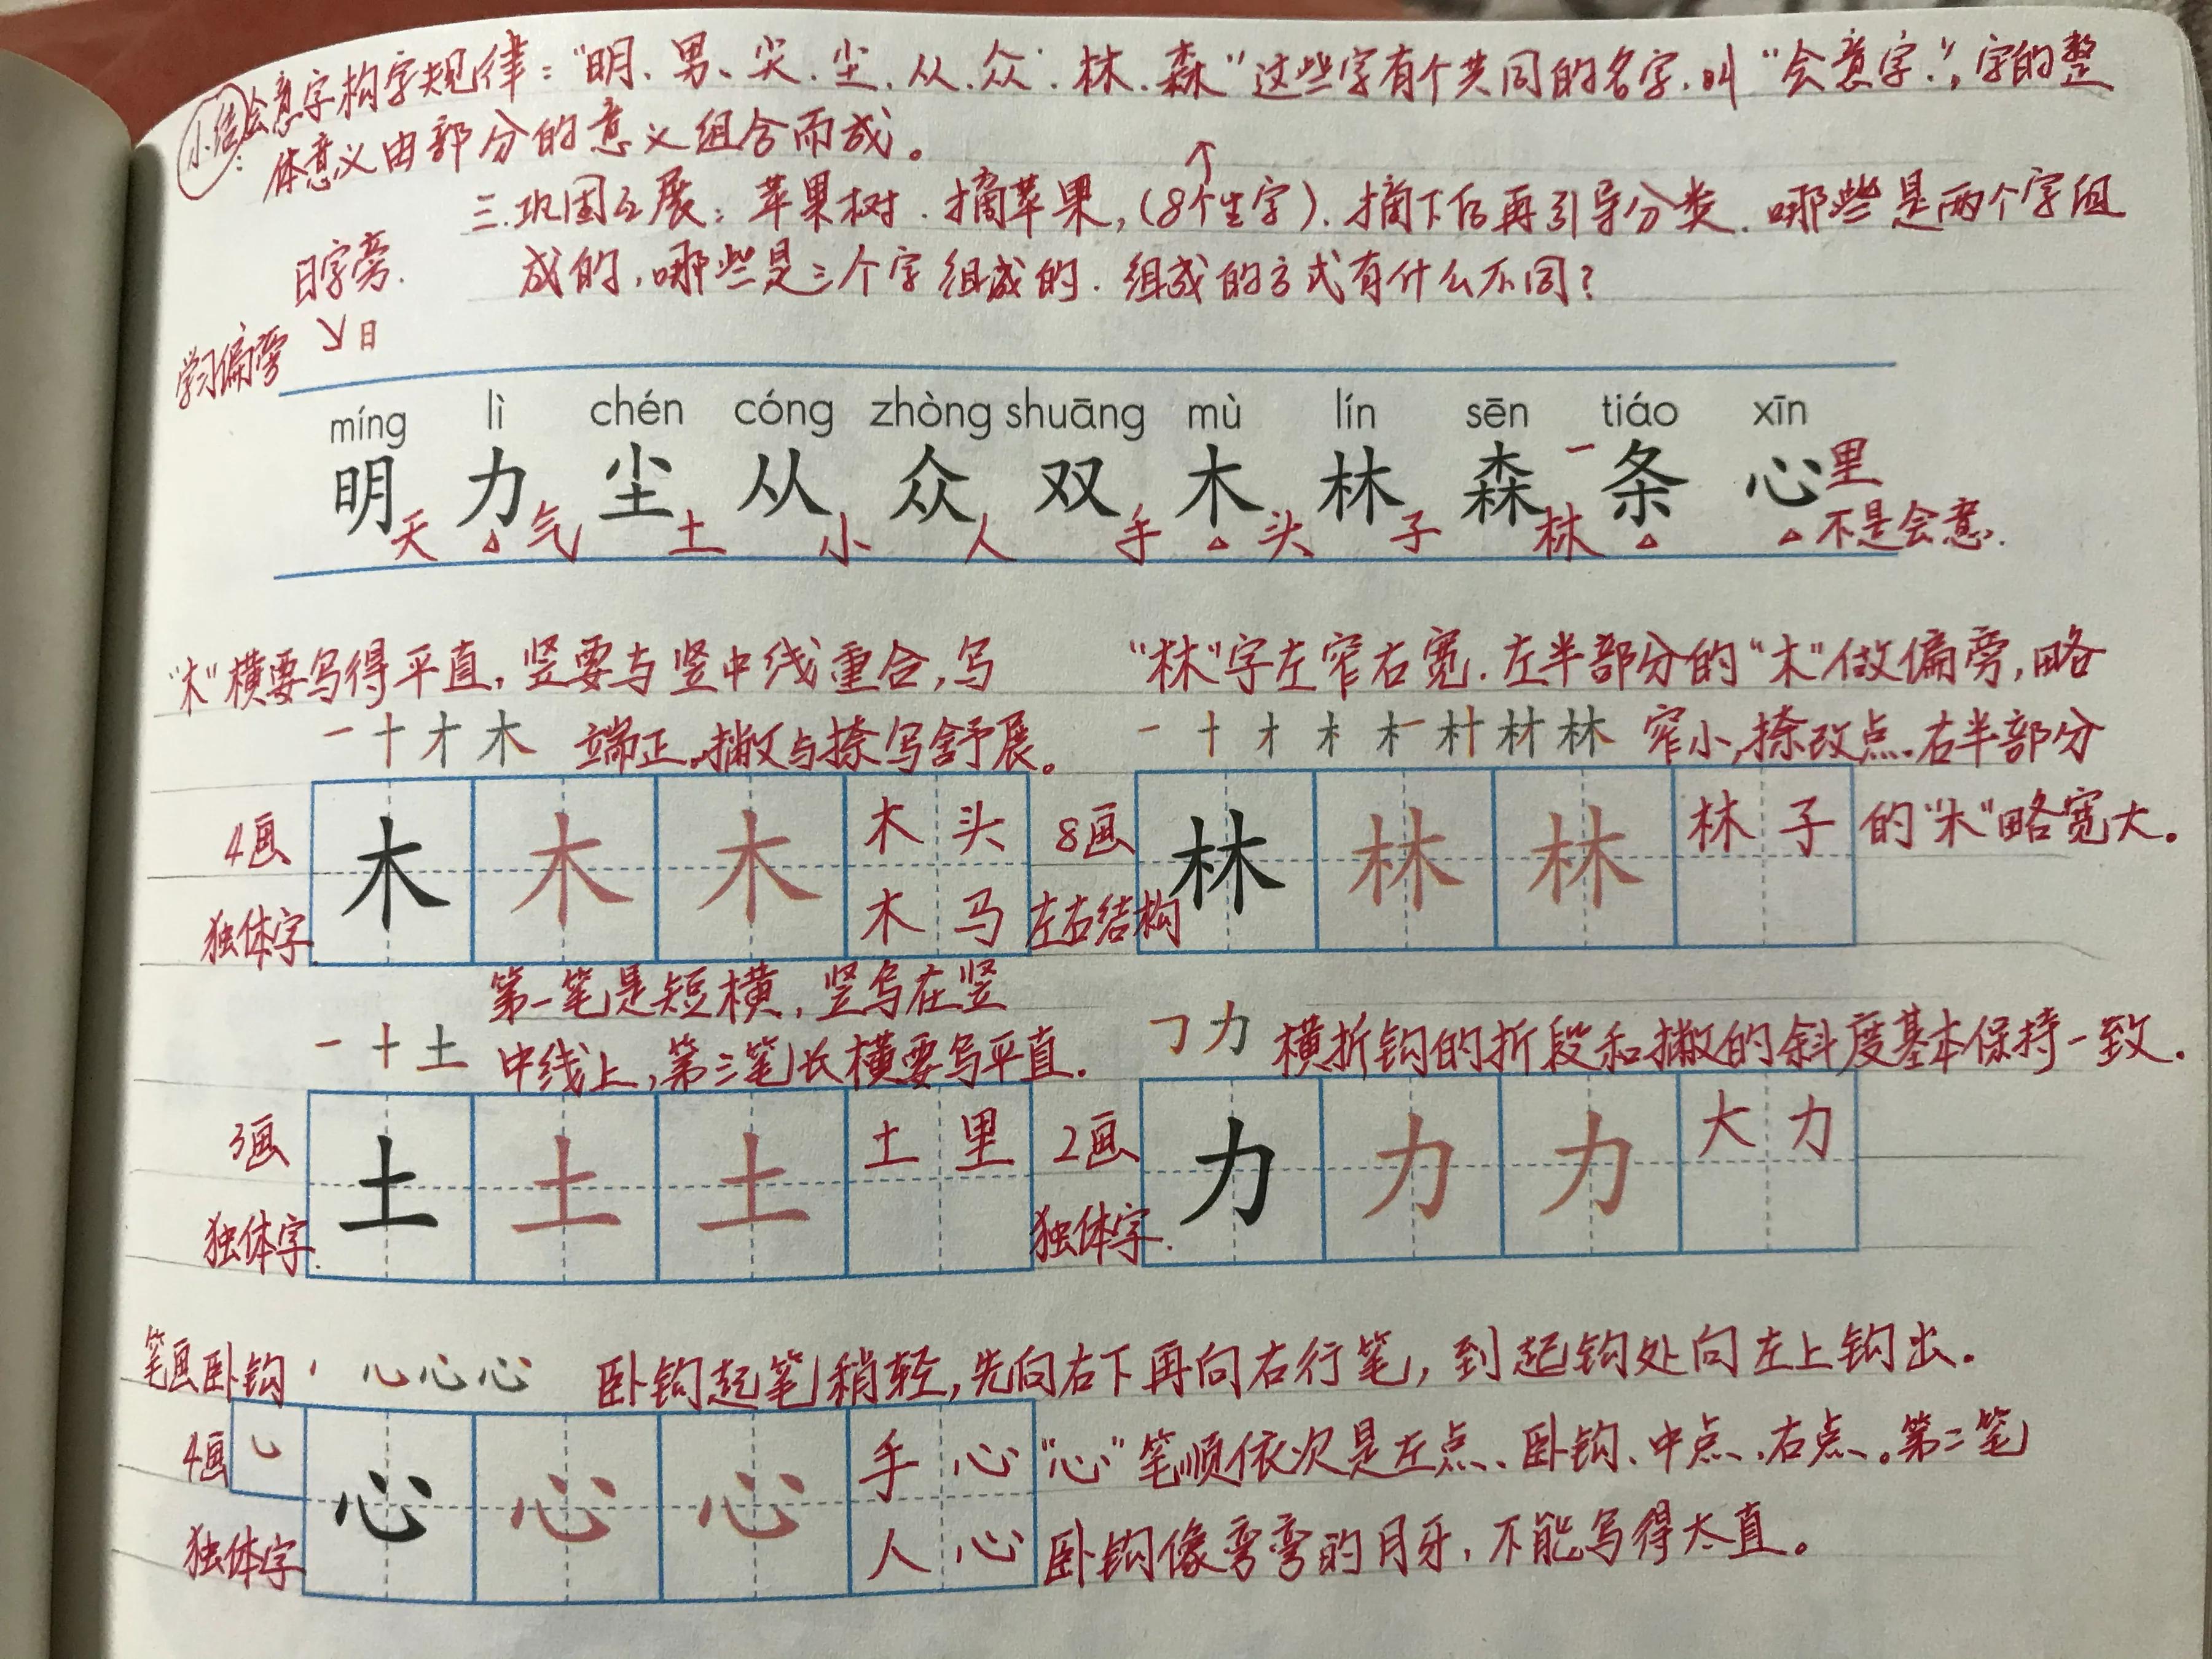 小结: 会意字构字规律:“明、男、尖、尘、从、众、林、森”这些字有个共同的名字,叫“会意字”,字的整
体意义由部分的意义组合而成。
三.巩固拓展:苹果树.摘苹果,(8个生字).摘下后再引导分类.哪些是两个字组
日字旁.
成的,哪些是三个字组成的.组成的方式有什么不同?
学习偏旁 日
míng lì chén cóng zhòng shuāng mù lín sēn tiáo xīn
明 力 尘 从 众 双 木 林 森 一条 心里
天 气 土 小 人 手 头 子 林 不是会意.
“木”横要写得平直,竖要与竖中线重合,写
一 十 才 木 端正.撇与捺写舒展。
4画 木 木 木 木头
独体字 木马
“林”字左窄右宽.左半部分的“木”做偏旁,略
一 十 才 木 林 窄小,捺改点.右半部分
8画 林 林 林 林子 的“木”略宽大。
左右结构
第一笔是短横,竖写在竖
一 十 土 中线上,第三笔长横要写平直.
3画 土 土 土 土里
独体字.
㇆ 力 横折钩的折段和撇的斜度基本保持一致.
2画 力 力 力 大力
独体字.
笔画卧钩 丶 心 心 心 卧钩起笔稍轻,先向右下再向右行笔,到起钩处向左上钩出.
4画 ㇃ 心 心 心 手心 “心”笔顺依次是左点、卧钩、中点、右点。第二笔
独体字 人心 卧钩像弯弯的月牙,不能写得太直。